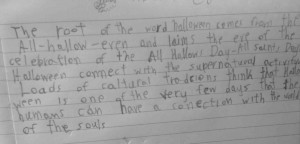 The root of the word halloween comes from the
All-hallow-even and laims the eve of the
celebration of the All Hallows Day-All Saints Day
Halloween connect with the supernatural
Loads of caltural think that
ween is one of the very few days that the
humans can have a conection with the
of the souls